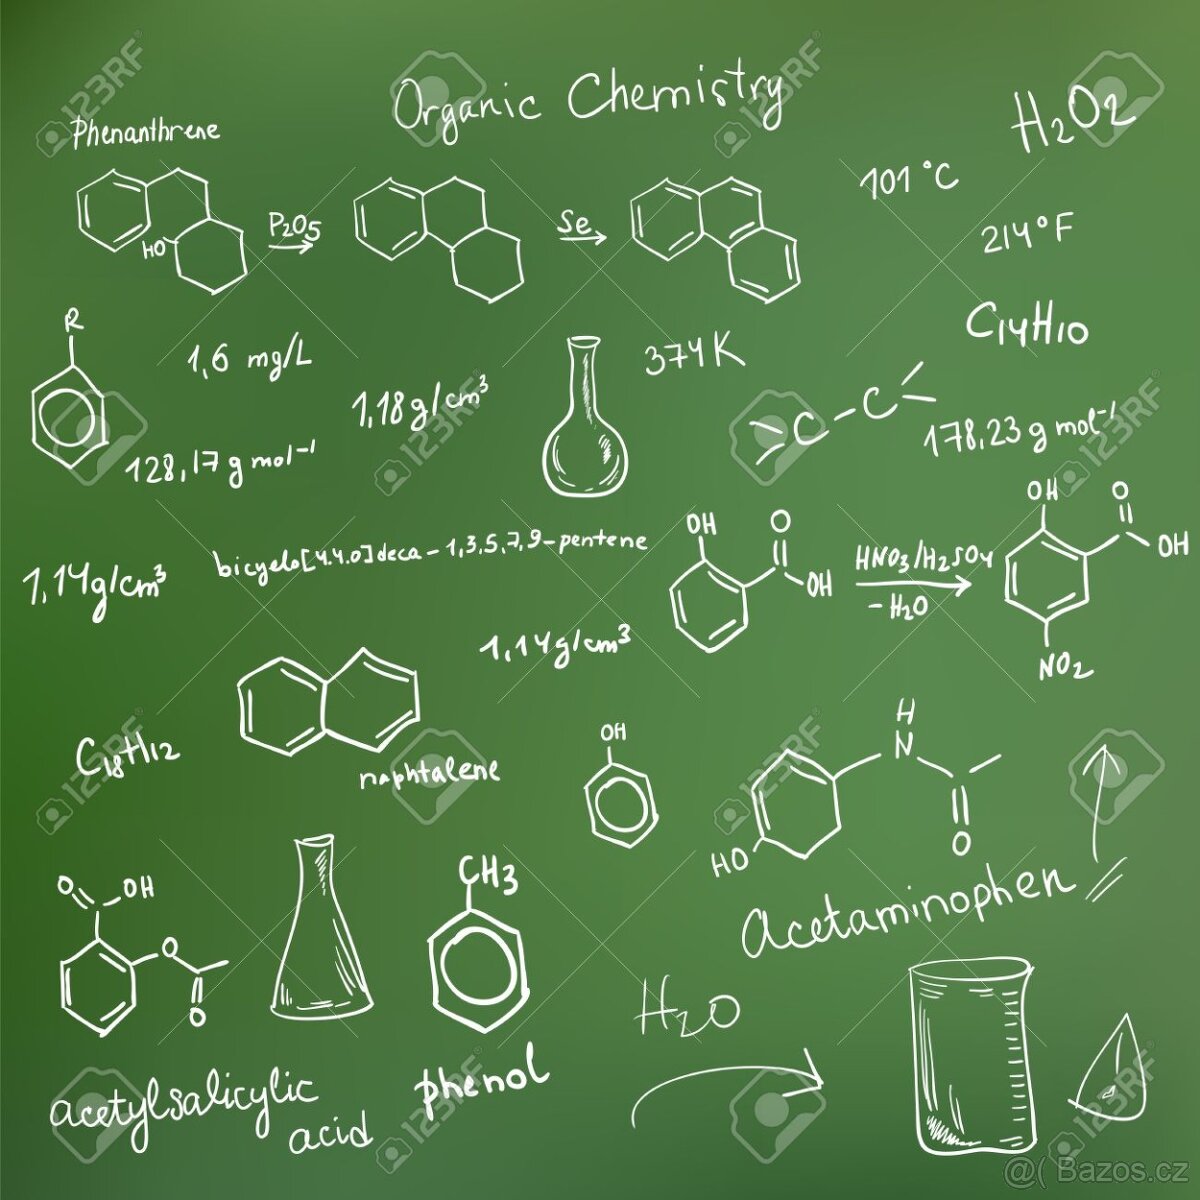 Organic Chemistry
H2O2
Phenanthrene
101 °C
HO
P2O5
Se
214°F
R
C14H10
1,6 mg/L
374K
1,18g/cm³
C-C
178,23 g mol⁻¹
128,17 g mol⁻¹
OH
O
OH
OH
O
OH
bicyclo[4.4.0]deca-1,3,5,7,9-pentene
HNO3/H2SO4
-H2O
NO2
1,14g/cm³
1,14g/cm³
C18H12
naphtalene
OH
H
N
O
HO
Acetaminophen
O
OH
O
O
acetylsalicylic
acid
CH3
phenol
H2O
123RF
@( Bazos.cz